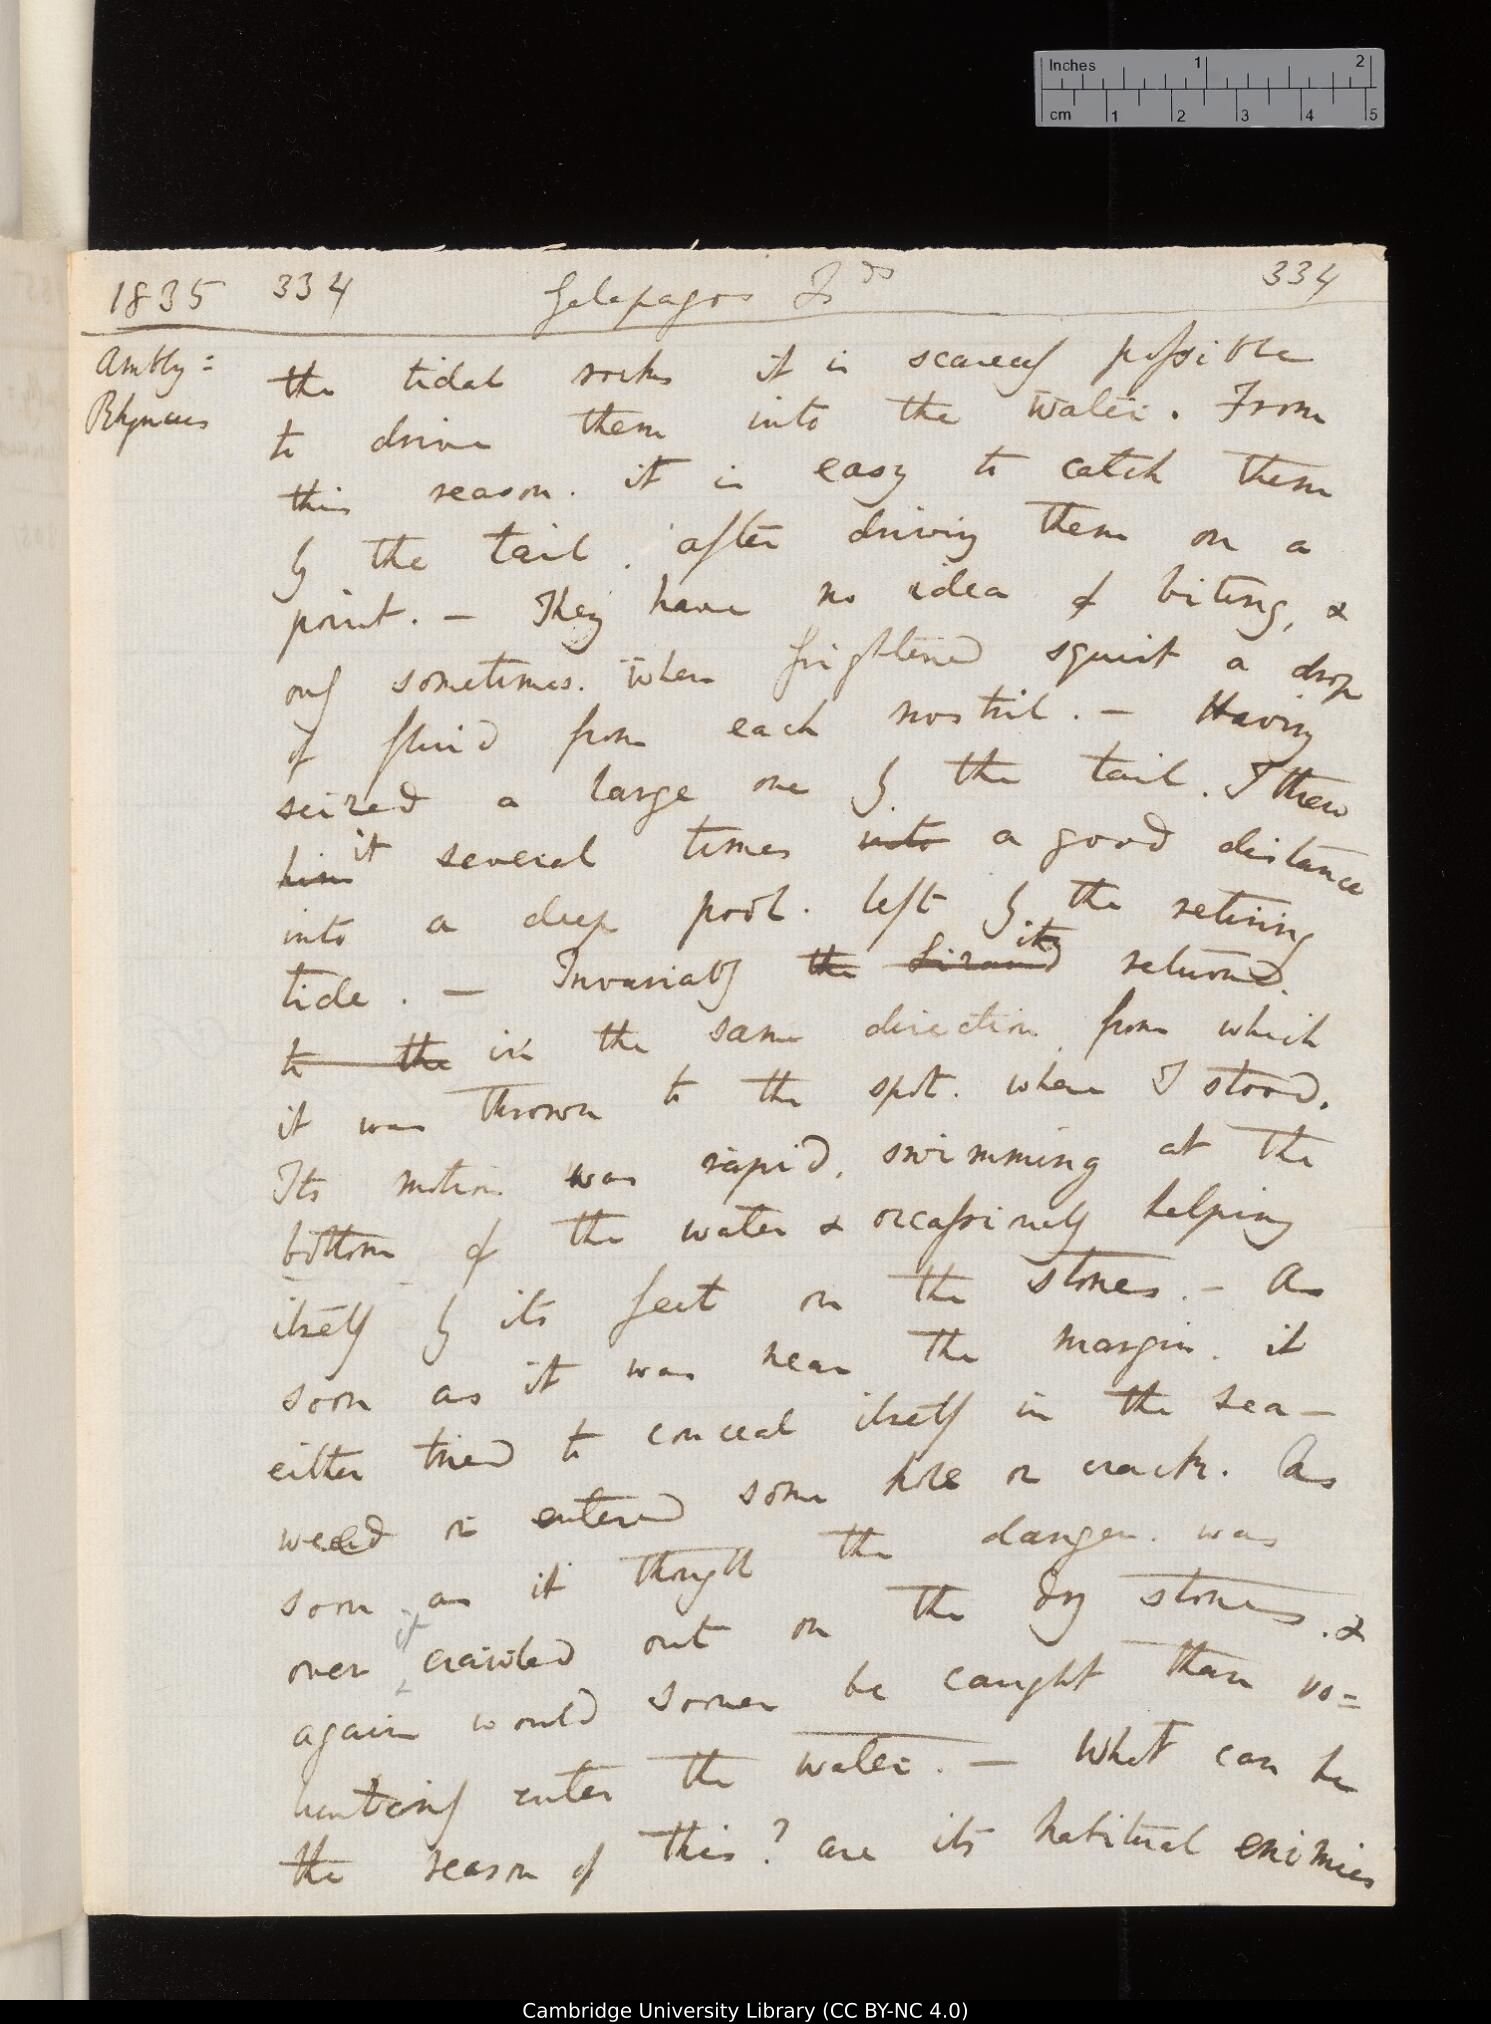 Inches 1 2
cm 1 2 3 4 5
1835 334 Galapagos Is ds 334
Ambly=
Rhyncus
the tidal rocks it is scarcely possible
to drive them into the water. From
this reason. it is easy to catch them
by the tail. after driving them on a
point. — They have no idea of biting, &
only sometimes. when frightened squirt a drop
of fluid from each nostril. — Having
seized a large one by the tail. I threw
him it several times into a good distance
into a deep pool. left by the retiring
tide. — Invariably the Lizard it returned.
to the in the same direction from which
it was thrown to the spot. where I stood.
Its motion was rapid, swimming at the
bottom of the water & occassionally helping
itself by its feet on the stones. — As
soon as it was near the margin. it
either tried to conceal itself in the sea-
weed or entered some hole or crack. As
soon as it thought the danger. was
over it crawled out on the dry stones. &
again would sooner be caught than vo=
luntarily enter the water. — What can be
the reason of this? are its habitual enimies
Cambridge University Library (CC BY-NC 4.0)